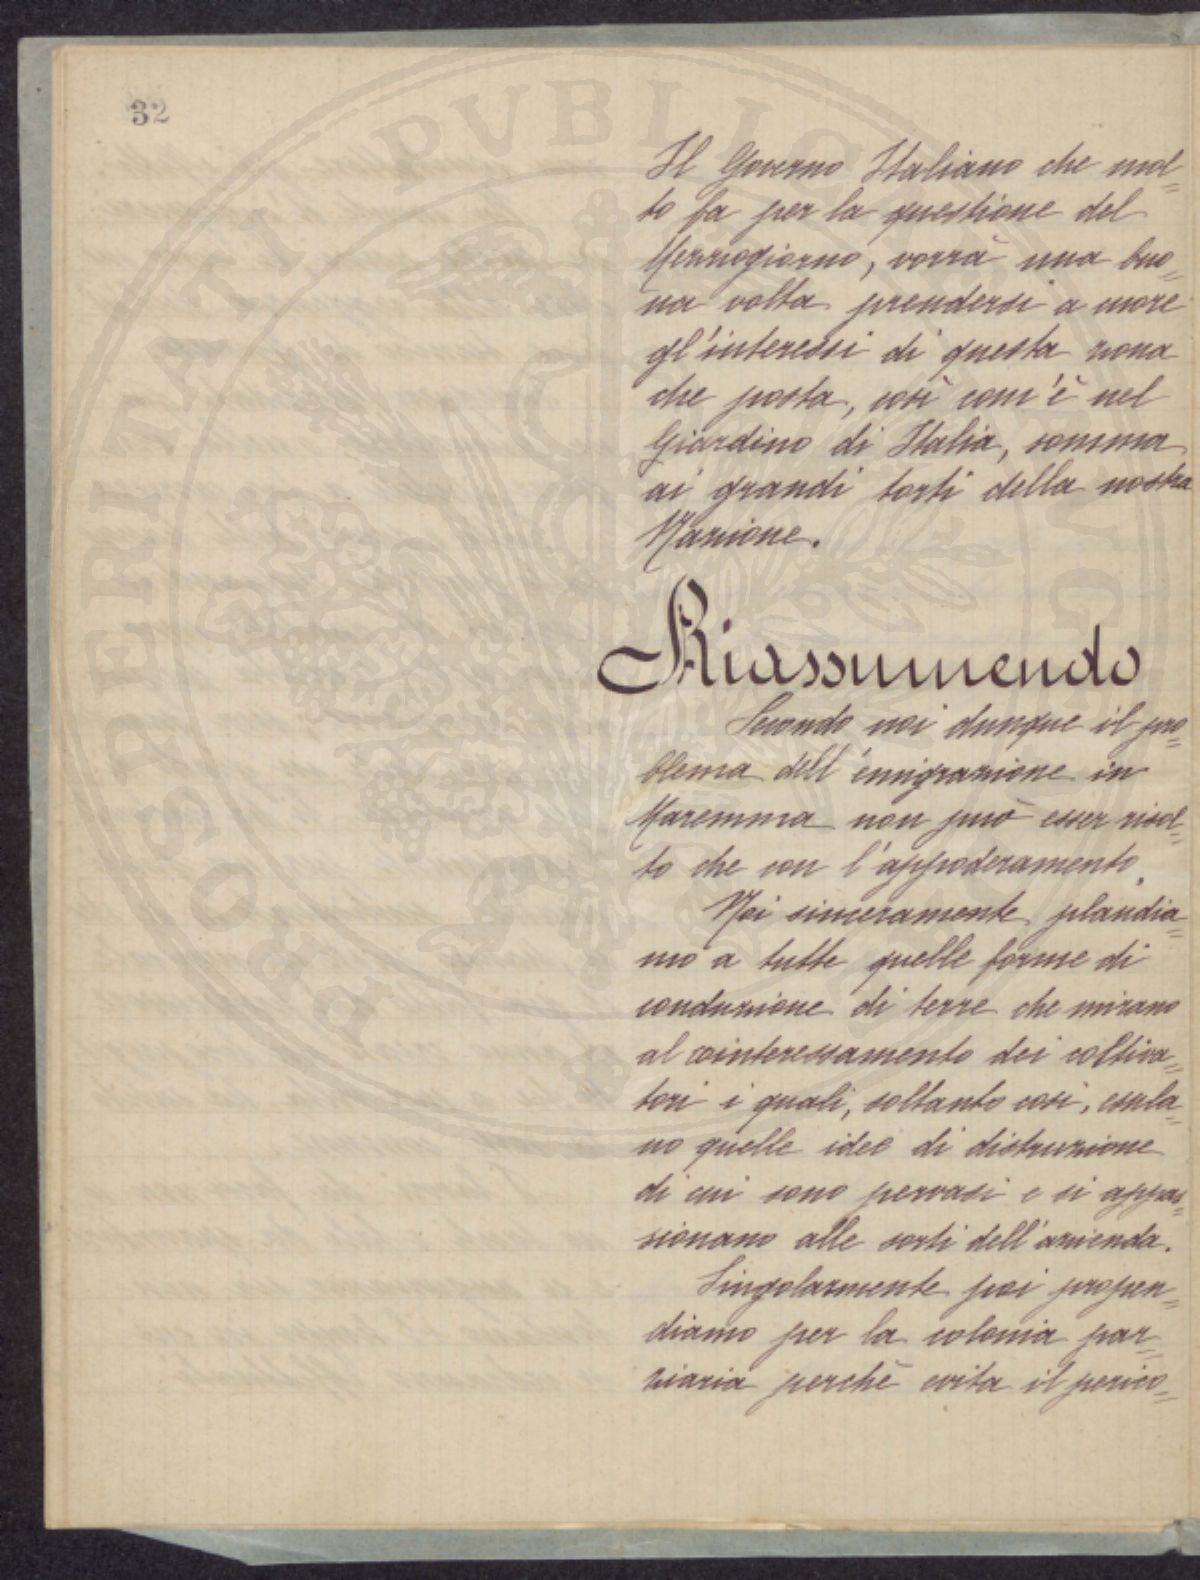 32
Il Governo Italiano che mol=
to fa per la questione del
Mezzogiorno, vorrà una buo=
na volta prendersi a cuore
gl'interessi di questa zona
che posta, così com'è nel
Giardino di Italia, somma
ai grandi torti della nostra
Nazione.
Riassumendo
Secondo noi dunque il pro=
blema dell'emigrazione in
Maremma non può esser risol=
to che con l'appoderamento.
Noi sinceramente plaudia=
mo a tutte quelle forme di
conduzione di terre che mirano
al cointeressamento dei coltiva=
tori i quali, soltanto così, esula=
no quelle idee di distruzione
di cui sono pervasi e si appas=
sionano alle sorti dell'azienda.
Singolarmente poi propen=
diamo per la colonia par=
ziaria perchè evita il perico=
PROSPERITATI PVBLIC